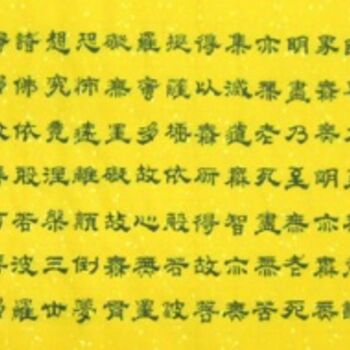 界無無明亦無無
明盡乃至無老死
亦無老死盡無苦
集滅道無智亦無
得以無所得故菩
提薩埵依般若波
羅蜜多故心無罣
礙無罣礙故無有
恐怖遠離顛倒夢
想究竟涅槃三世
諸佛依般若波羅